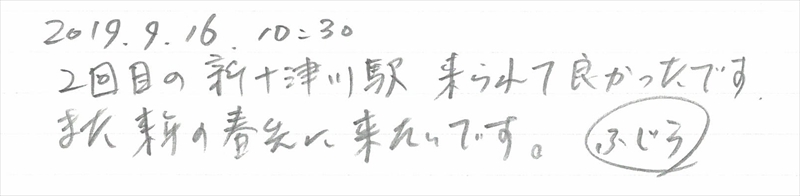 2019.9.16 10:30
2回目の新十津川駅 来られて良かったです.
また来年の春先に来たいです。 ふじろ